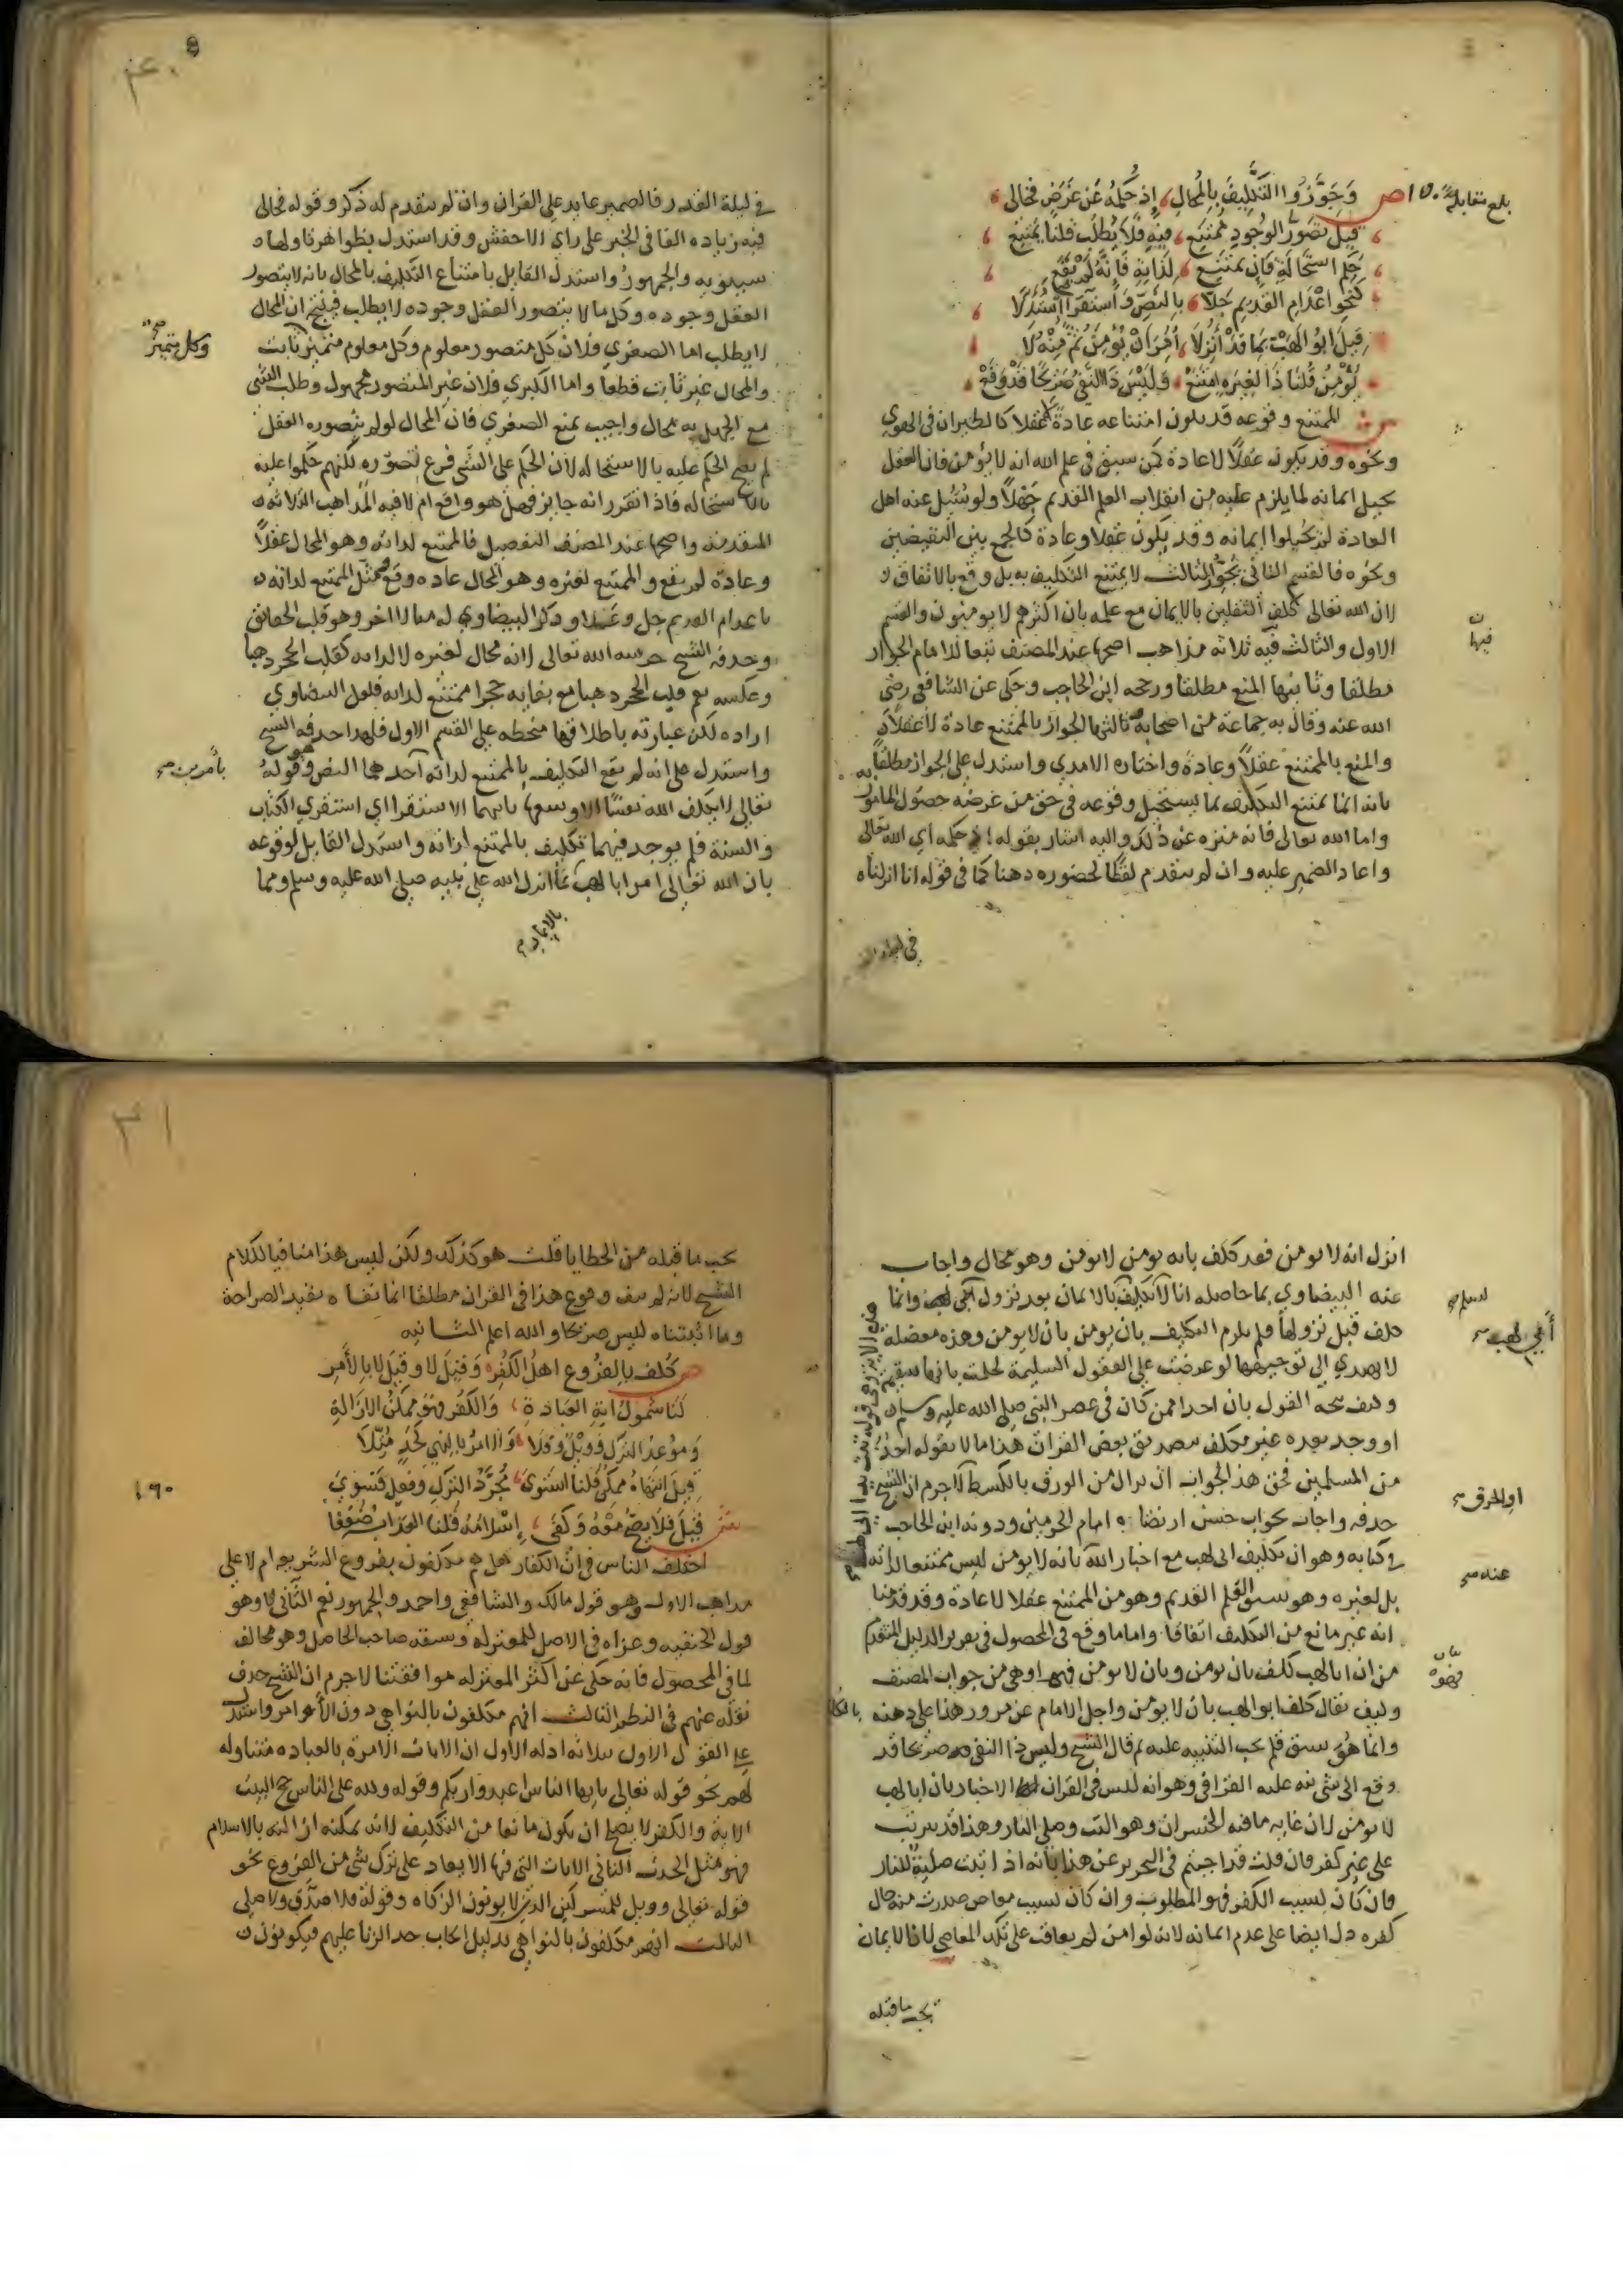 بلغ مقابلة ١٥٠
ص وَجَوَّزُوا التَّكْلِيفَ بِالمُحَالِ، إذ حُكْمُهُ عَنْ غَرَضٍ فخَالِى
قِيلَ تَصَوُّرُ الوُجُودِ مُمْتَنِع، فيه فَلَا يُطْلَبُ قلنا يمتنع
حُكم اسْتِحَالَةٍ فَإِن يَمْتَنِع، لِذَاتِهِ فَإِنَّهُ لَمْ يَقَعِ
كنَحْوِ اعْدَامِ القديم جَلَّا، بِالنَّصِّ وَاسْتِقْرَا اسْتُدِلَّا
قِيلَ ابُو لَهَبْ بِمَا قَدْ أُنْزِلَا، أُمِرَ أَنْ يُؤْمِنَ ثُمَّ مِنْهُ لَا
يُؤْمِنُ قُلْنَا ذَا لِغَيْرِهِ امْتَنَعْ، وَلَيْسَ ذَا النَّفْيُ صَرِيحًا قَدْ وَقَعْ
ش الممتنع وقوعه قد يكون امتناعه عادة لا عقلا كالطيران فى الهوي
ونحوه وقد يكون عقلًا لا عادة كمن سبق فى علم الله انه لا يؤمن فان العقل
يحيل ايمانه لما يلزم عليه من انقلاب العلم القديم جهلًا ولو سُئل عنه اهل
العادة لم يحيلوا ايمانه وقد يكون عقلا وعادة كالجمع بين النقيضين
ونحوه فالقسم الثانى نحو الثالث لا يمتنع التكليف به بل وقع بالاتفاق
لان الله تعالى كلف الثقلين بالايمان مع علمه بان اكثرهم لا يومنون والقسم
الاول والثالث فيه ثلاثة مذاهب اصحها عند المصنف تبعا للامام الجواز
فيها
مطلقا وثانيها المنع مطلقا ورجحه ابن الحاجب وحكى عن الشافعى رضى
الله عنه وقال به جماعة من اصحابه وثالثها الجواز بالممتنع عادة لا عقلًا
والمنع بالممتنع عقلًا وعادة واختاره الامدي واستدل على الجواز مطلقًا
بانه انما يمتنع التكليف بما يستحيل وقوعه فى حق من غرضه حصول المامور به
واما الله تعالى فانه منزه عن ذلك واليه اشار بقوله إذ حكمه اي الله تعالى
واعاد الضمير عليه وان لم يتقدم لفظًا لحضوره ذهنا كما فى قوله انا انزلناه
فى ليلة
في ليلة القدر فالضمير عايد على القران وان لم يتقدم له ذكر وقوله فخالى
فيه زياده الفا فى الخبر على راي الاخفش وقد استدل بظواهر تاولها
سيبويه والجمهور واستدل القايل بامتناع التكليف بالمحال بانه لا يتصور
العقل وجوده وكل ما لا يتصور العقل وجوده لا يطلب فينتج ان المحال
لا يطلب اما الصغري فلان كل متصور معلوم وكل معلوم متميز ثابت
وكل متميز صح
والمحال غير ثابت قطعا واما الكبري فلان غير المتصور مجهول وطلب الشى
مع الجهل به محال واجيب بمنع الصغري فان المحال لو لم يتصوره العقل
لم يصح الحكم عليه بالاستحاله لان الحكم على الشى فرع تصوره لكنهم حكموا عليه
بالاستحاله فاذا تقرر انه جايز فهل هو واقع ام لا فيه المذاهب الثلاثه
المتقدمه واصحها عند المصنف التفصيل فالممتنع لذاته وهو المحال عقلًا
وعادة لم يقع والممتنع لغيره وهو المحال عاده وقع ومثل الممتنع لذاته
باعدام القديم جل وعلا وذكر البيضاوي له مثالا اخر وهو قلب الحقائق
وحذفه الشيخ رحمه الله تعالى لانه محال لغيره لا لذاته كقلب الحجر ذهبا
وعكسه نعم قلب الحجر ذهبا مع بقايه حجرا ممتنع لذاته فلعل البيضاوي
اراده لكن عبارته باطلاقها منحطه على القسم الاول فلهذا حذفه الشيخ
واستدل على انه لم يقع التكليف بالممتنع لذاته احدهما النص وهو قوله
بامرين صح
تعالى لا يكلف الله نفسًا الا وسعها ثانيهما الاستقرا اي استقري الكتاب
والسنة فلم يوجد فيهما تكليف بالممتنع لذاته واستدل القايل لوقوعه
بان الله تعالى امر ابا لهب بما انزل الله على نبيه صلى الله عليه وسلم ومما
بالايمان صح
انزل انه لا يومن فقد كلف بانه يومن لا يومن وهو محال واجاب
عنه البيضاوي بما حاصله انا لا نسلم تكليف بالايمان بعد نزول وانما
لسلم صح
أبي لهب صح
كلف قبل نزولها فلم يلزم التكليف بان يومن بان لا يومن وهذه معضلة
لا يهتدي الى توجيهها لو عرضت على العقول السليمة لحكمت بانها سقيم
وكيف يتجه القول بان احدا ممن كان فى عصر النبى صلى الله عليه وسلم
او وجد بعده غير مكلف بتصديق بعض القران هذا ما لا يقوله احد
من المسلمين فحق هذا الجواب ان يزال من الورق بالكشط لا جرم ان الشيخ
او الحرق صح
حذفه واجاب بجواب حسن ارتضاه امام الحرمين ودونه ابن الحاجب
فى كتابه وهو ان تكليف ابى لهب مع اخبار الله بانه لا يومن ليس ممتنعا لذاته
عنه صح
بل لغيره وهو سبق العلم القديم وهو من الممتنع عقلا لا عادة وقد قدمنا
انه غير مانع من التكليف اتفاقا واما ما وقع فى المحصول فى تقرير الدليل المتقدم
من ان ابا لهب كلف بان يومن وبان لا يومن فهو اوهى من جواب المصنف
وكيف يقال كلف ابو لهب بان لا يومن واجل الامام عن مرور هذا على ذهنه
وانما هو سبق قلم يجب التنبيه عليه ثم قال الشيخ وليس ذا النفى صريحا قد
وقع الى شى نبه عليه القرافى وهو انه ليس فى القران الاخبار بان ابا لهب
لا يومن لان غايه ما فيه الخسران وهو التب وصلي النار وهذا قد يترتب
على غير كفر فان قلت قد اجبتم فى التحرير عن هذا بانه اذا ثبت صليه للنار
فان كان بسبب الكفر فهو المطلوب وان كان بسبب معاص صدرت منه حال
كفره دل ايضا على عدم ايمانه لانه لو امن لم يعاقب على تلك المعاصى لان الايمان
يجب ما قبله
يجب ما قبله من الخطايا قلت هو كذلك ولكن ليس هذا منافيا لكلام
الشيخ لانه لم ينف وقوع هذا فى القران مطلقا انما نفاه بقيد الصراحة
وما اثبتناه ليس صريحا والله اعلم الثانيه
ص كُلِّف بِالفُرُوعِ اهْلُ الكُفْرِ، وَقِيلَ لا وقِيلَ لا بِالأَمْرِ
لَنَا شُمُولُ ايَةِ العِبَادَةِ، وَالكُفْرُ فهْوَ مُمْكِنُ الازَالةِ
وَمُوعِدُ التَّرْكِ فَوَيْلٌ وفَلَا، وَالامْرُ بِالنَّهْيِ لِحَدٍّ مُثِّلَا
قِيلَ انْتِهَاءٌ مُمْكِنٌ قُلْنَا اسْتَوَى، مُجَرَّدُ التَّرْكِ وَفِعْلٍ فَسَوِي
١٩٠
قِيلَ فَلَا يَصِحُّ مِنْهُ وَكَفَى، إِسْلَامُهُ قُلْنَا العَذَابُ ضُوعِفَا
ش اختلف الناس فى ان الكفار هل هم مكلفون بفروع الشريعه ام لا على
مذاهب الاول وهو قول مالك والشافعى واحمد والجمهور نعم الثانى لا وهو
قول الحنفيه وعزاه فى الاصل للمعتزله وسبقه صاحب الحاصل وهو مخالف
لما فى المحصول فانه حكى عن اكثر المعتزله موافقتنا لا جرم ان الشيخ حذف
نقله عنهم فى النظم الثالث انهم مكلفون بالنواهي دون الأوامر واستدل
على القول الاول بثلاثه ادله الاول ان الايات الامرة بالعباده متناوله
لهم نحو قوله تعالى يايها الناس اعبدوا ربكم وقوله ولله على الناس حج البيت
الاية والكفر لا يصلح ان يكون مانعا من التكليف لانه يمكنه ازالته بالاسلام
فهو مثل الحدث الثانى الايات التى فيها الايعاد على ترك شى من الفروع نحو
قوله تعالى وويل للمشركين الذين لا يوتون الزكاه وقوله فلا صدق ولا صلى
الثالث انهم مكلفون بالنواهي بدليل ايجاب حد الزنا عليهم فيكونون